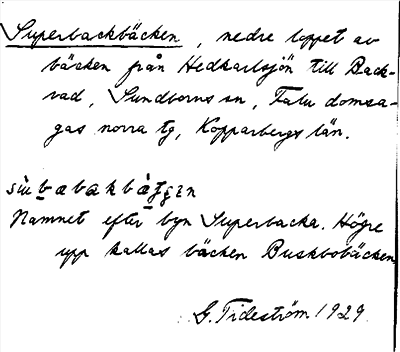 Superbackbäcken, nedre loppet av
bäcken från Hedkarlsjön till Back-
vad, Sundborns sn, Falu domsa-
gas norra tg, Kopparbergs län.
Namnet efter byn Superbacka. Högre
upp kallas bäcken Buskbobäcken
G. Tideström 1929